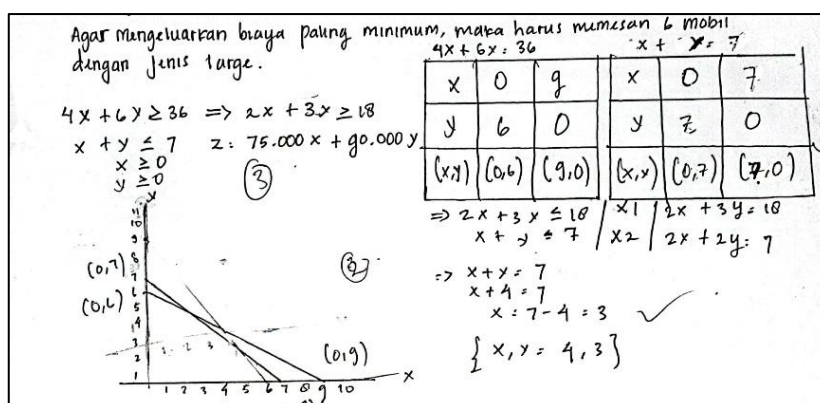 Agar mengeluarkan biaya paling minimum, maka harus memesan 6 mobil
dengan jenis large.
4x + 6y ≥ 36 => 2x + 3x ≥ 18
x + y ≤ 7 z: 75.000 x + 90.000 y
x ≥ 0
y ≥ 0
③
4x + 6y = 36
x 0 9
y 6 0
(x,y) (0,6) (9,0)
x + y = 7
x 0 7
y 7 0
(x,y) (0,7) (7,0)
=> 2x + 3y ≤ 18 | x1 | 2x + 3y = 18
x + y ≤ 7 | x2 | 2x + 2y = 7
=> x + y = 7
x + 4 = 7
x = 7 - 4 = 3 ✓
{ x, y = 4, 3 }
y
11
10
9
8
(0,7) 7
(0,6) 6
5
4
3
2
1
(0,9)
1 2 3 4 5 6 7 8 9 10 x